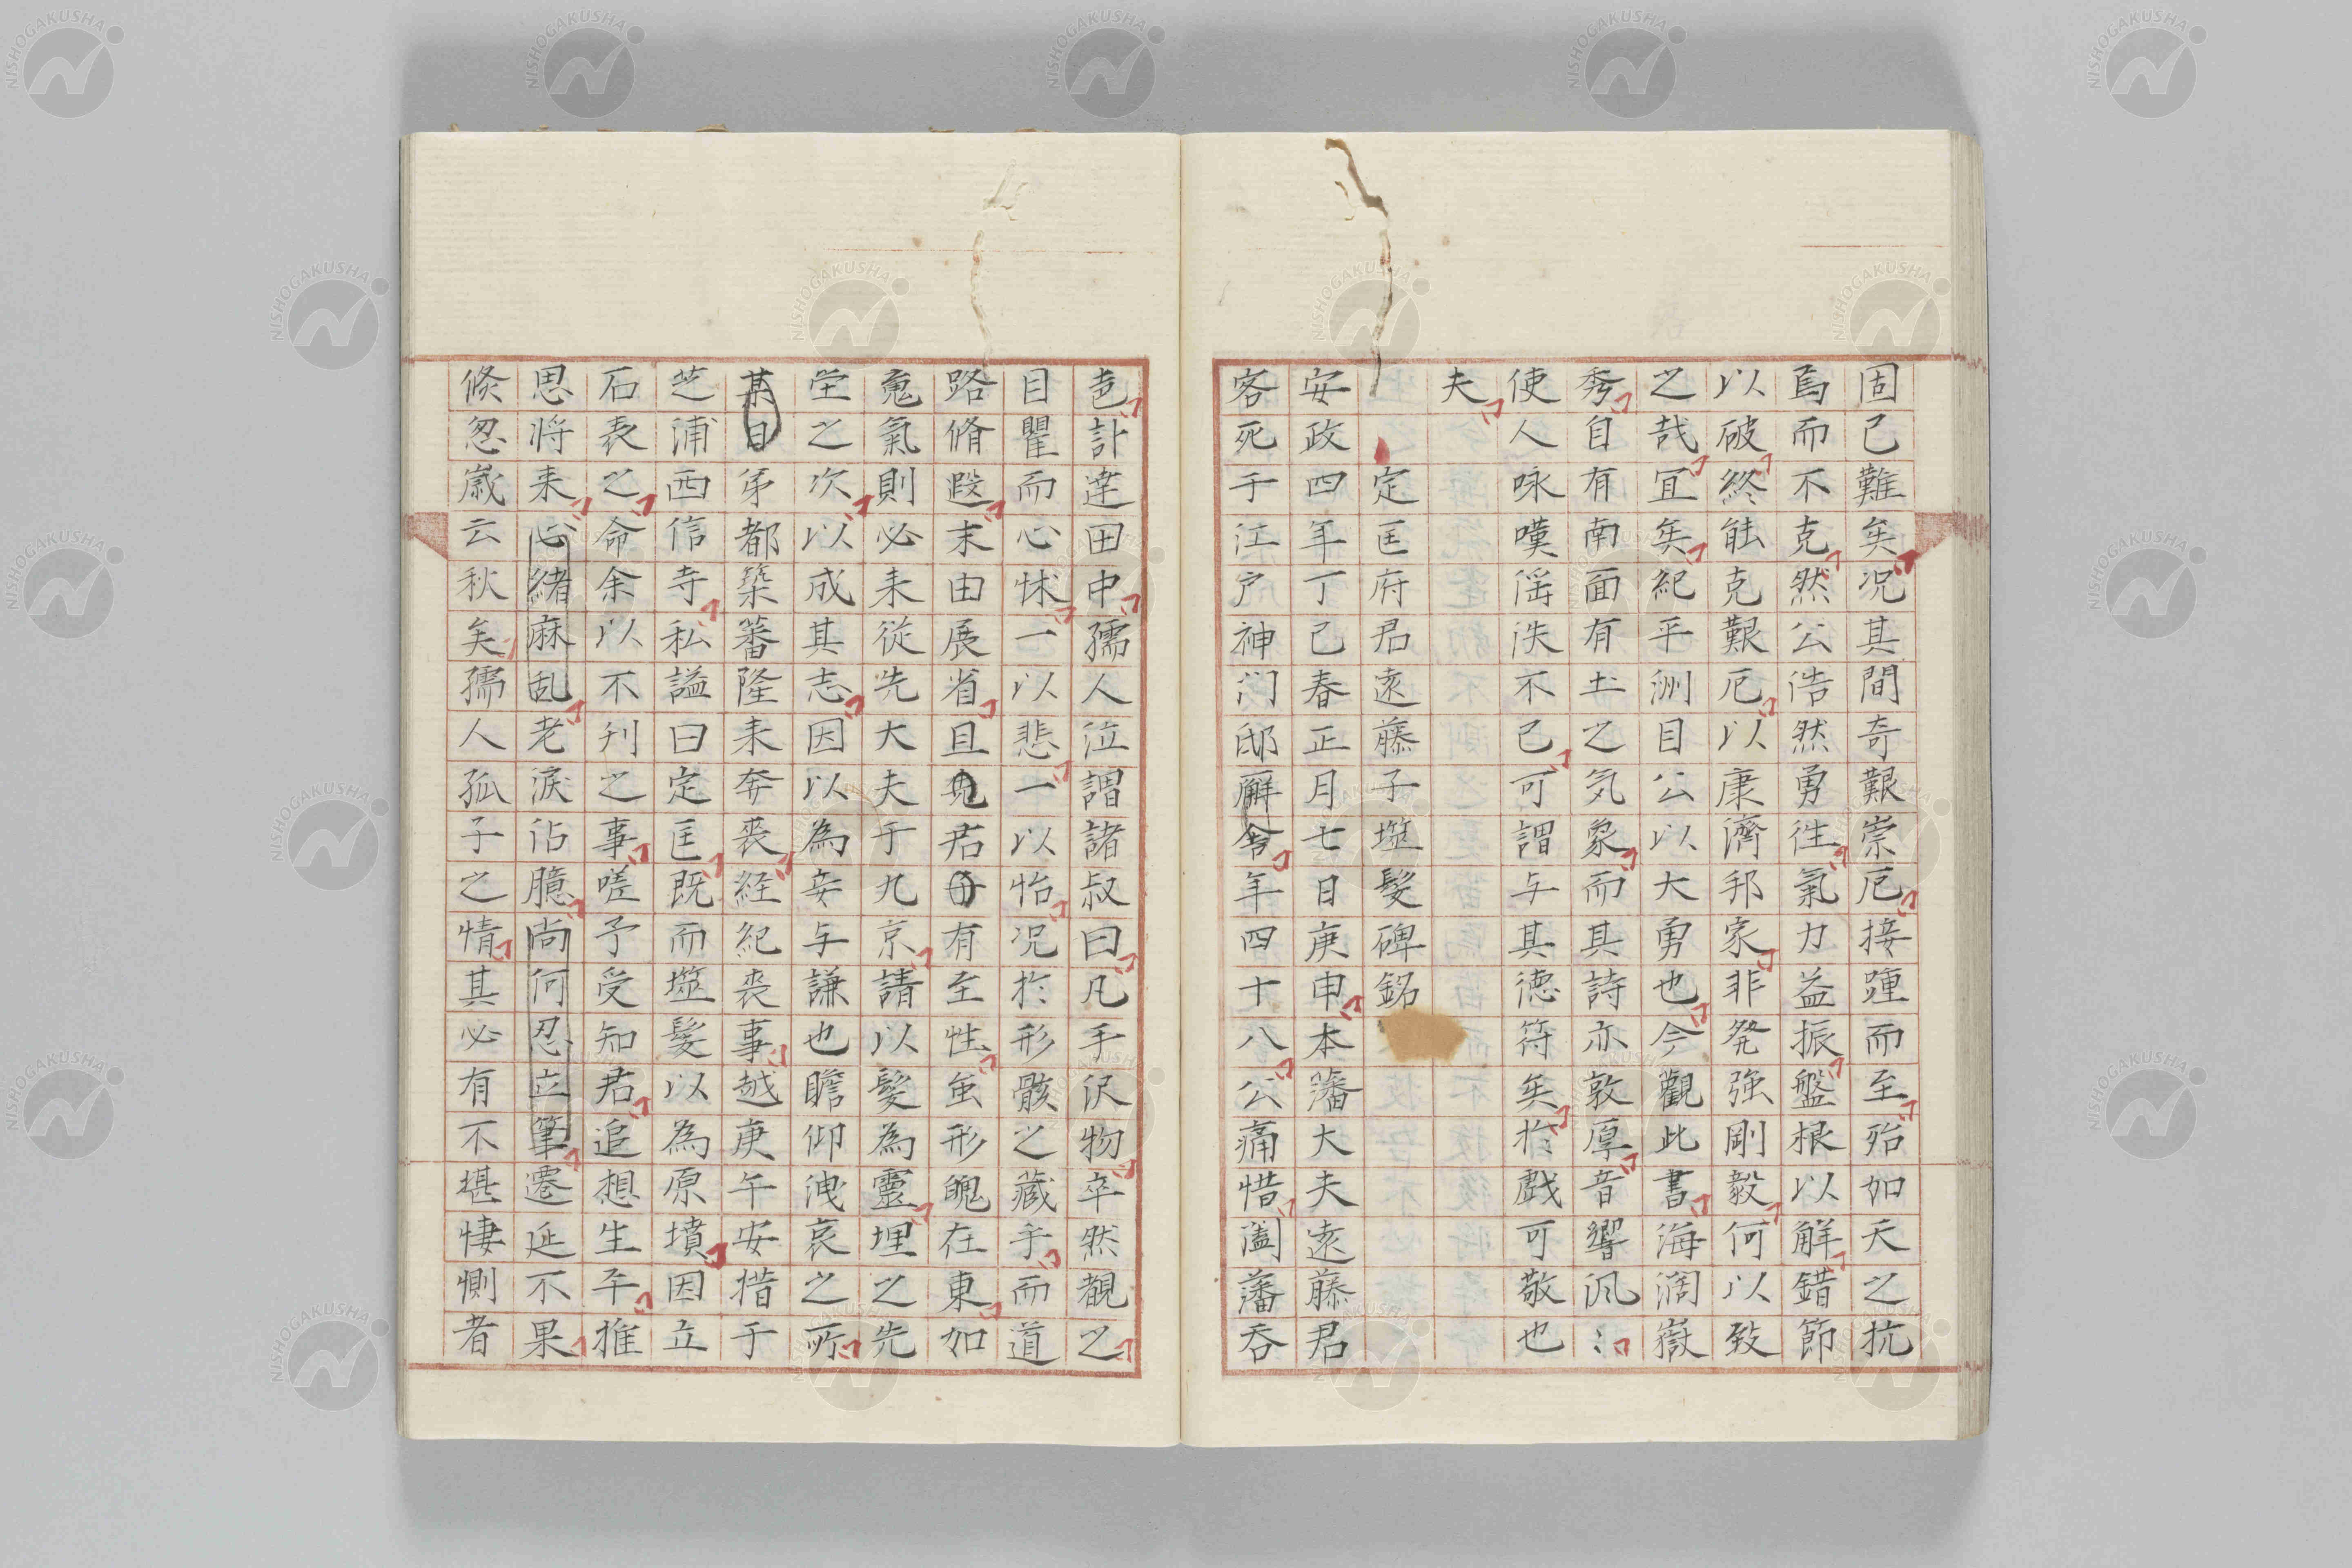 固已難矣况其間奇艱崇厄接踵而至殆如天之抗
焉而不克然公浩然勇徃氣力益振盤根以解錯節
以破終能克艱厄以康濟邦家非発強剛毅何以致
之哉宜矣紀平洲目公以大勇也今觀此書海濶嶽
秀自有南面有土之気象而其詩亦敦厚音響渢〻
使人咏嘆滛泆不已可謂与其徳符矣於戲可敬也
夫
定匡府君遠藤子塟髮碑銘
安政四年丁巳春正月七日庚申本藩大夫遠藤君
客死于江戸神门邸廨舎年四十八公痛惜闔藩吞
訃達田中孺人泣謂諸叔曰凡手沢物卒然覩之
目瞿而心怵一以悲一以怡况於形骸之藏乎而道
路脩遐末由展省且先君有至性虽形魄在東如
䰟氣則必来従先大夫于九京請以髮為靈埋之先
塋之次以成其志因以為妥与謙也瞻仰洩哀之所
某日弟都築蕃隆来奔喪経紀喪事越庚午安措于
芝浦西信寺私謚曰定匡既而塟髮以為原墳因立
石表之命余以不刋之事嗟予受知君追想生平推
思将来心緒麻乱老淚沾臆尚何忍立筆遷延不果
倐忽嵗云秋矣孺人孤子之情其必有不堪悽惻者
NISHOGAKUSHA